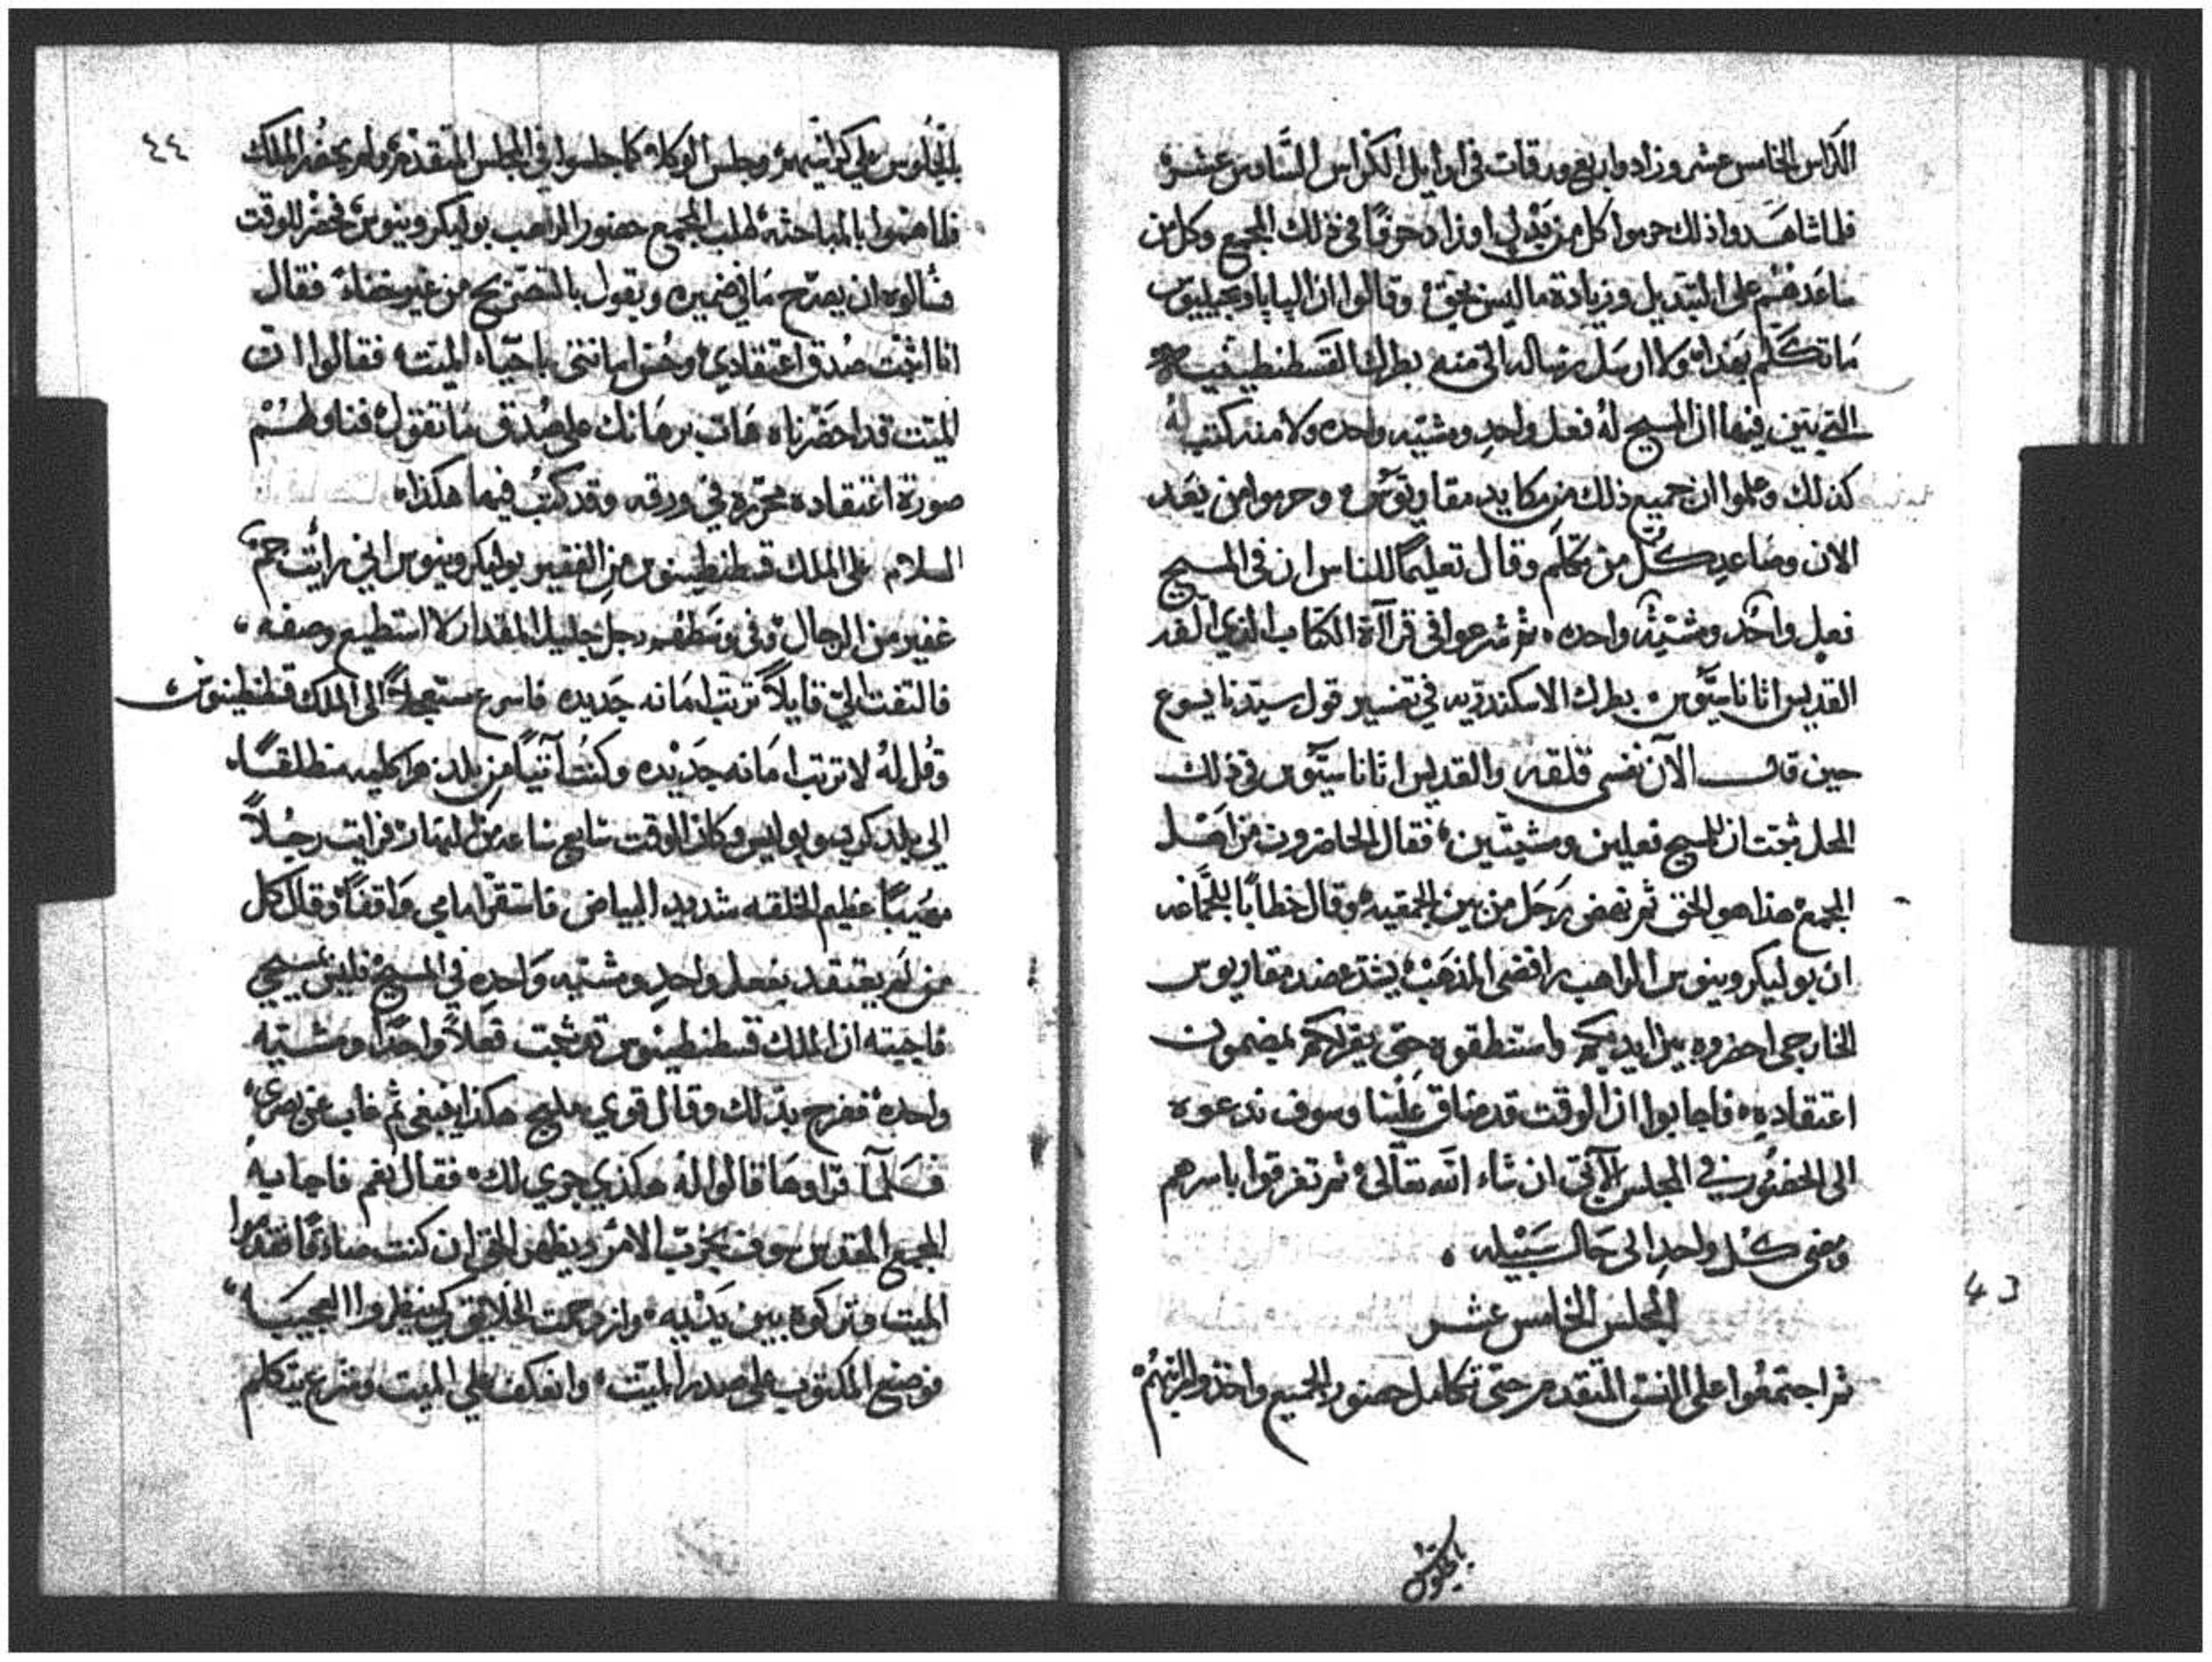 الكراس الخامس عشر وزادوا اربع ورقات في اوايل الكراس السادس عشر
فلما شاهدوا ذلك حرموا كل من يبدل او زاد حرفًا في ذلك المجمع وكل من
ساعدهم على التبديل وزيادة ما ليس بحق وقالوا ان البابا ويجيليوس
ما تكلم بهذا ولا ارسل رسالة الى منه بطرك القسطنطينيه
التي تبين فيها ان المسيح له فعل واحد ومشيه واحده ولا منه كتب له
كذلك وعلموا ان جميع ذلك من مكايد مقاريوس وحرموا من بعد
الان وصاعد كل من تكلم وقال تعليمًا للناس ان في المسيح
فعل واحد ومشيه واحده ثم شرعوا في قرآة الكتاب الذي الفه
القديس اثاناسيوس بطرك الاسكندريه في تفسير قول سيدنا يسوع
حين قال الآن نفسي قلقه والقديس اثاناسيوس في ذلك
المحل يثبت ان للمسيح فعلين ومشيتين فقال الحاضرون من اهل
المجمع هذا هو الحق ثم نهض رجل من بين الجمعيه وقال خطابًا للجماعه
ان بوليكرونيوس الراهب رافضى المذهب يشده ضد مقاريوس
الخارجى احضروه بين ايديكم واستنطقوه حتى يقر لكم بمضمون
اعتقاديه فاجابوا ان الوقت قد ضاق علينا وسوف ندعوه
الى الحضور في المجلس الآتي ان شاء الله تعالى ثم تفرقوا باسرهم
ومضى كل واحد الى حال سبيله
المجلس الخامس عشر
ثم اجتمعوا على النسق المتقدم حتى تكامل حضور الجميع واخذوا الرتبهم
بالجلوس
43
٤٤
بالجلوس على كراسيهم وجلس الوكلاء كما جلسوا في المجلس المتقدم ولم يحضر الملك
فلما هموا بالمباحثه طلب المجمع حضور الراهب بوليكرونيوس فحضر للوقت
فسالوه ان يصرح ما في ضميره ويقول بالتصريح من غير خفاء فقال
انا اثبت صدق اعتقادي وحسن امانتي باحياء الميت فقالوا ان
الميت قد احضرناه هات برهانك على صدق ما تقول فناولهم
صورة اعتقاده محررة في ورقه وقد كتب فيها هكذا
السلام على الملك قسطنطينوس من الفقير بوليكرونيوس اني رأيت جم
غفير من الرجال وفي وسطهم رجل جليل المقدار لا استطيع وصفه
فالتفت الي قايلاً ترتب امانه جديده فاسرع مستعجلاً الى الملك قسطنطينوس
وقل له لا ترتب امانه جديده وكنت آتيًا من بلد هراكليه منطلقًا
الى بلد كريسوبوليس وكان الوقت سابع ساعه من النهار فرايت رجلاً
مهيبًا عظيم الخلقه شديد البياض فاستقر امامي واقفًا وقال كل
من لم يعتقد بفعل واحد ومشيه واحده في المسيح فليس بمسيحي
فاجبته ان الملك قسطنطينوس قد ثبت فعلاً واحدًا ومشيه
واحده ففرح بذلك وقال قوي مليح هكذا ينبغي ثم غاب عن بصري
فلما قراوها قالوا له هكذي جري لك فقال نعم فاجابه
المجمع المقدس سوف يجرب الامر ويظهر الحق ان كنت صادقًا فقدموا
الميت وتركوه بين يديه وازدحمت الخلايق كي ينظروا العجيب
فوضع المكتوب على صدر الميت وانعكف على الميت وشرع يتكلم